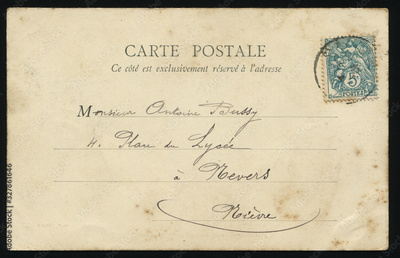 CARTE POSTALE
Ce côté est exclusivement réservé à l'adresse
Monsieur Antoine Bussy
4. Place du Lycée
à Nevers
Nièvre
5
Adobe Stock | #327661646